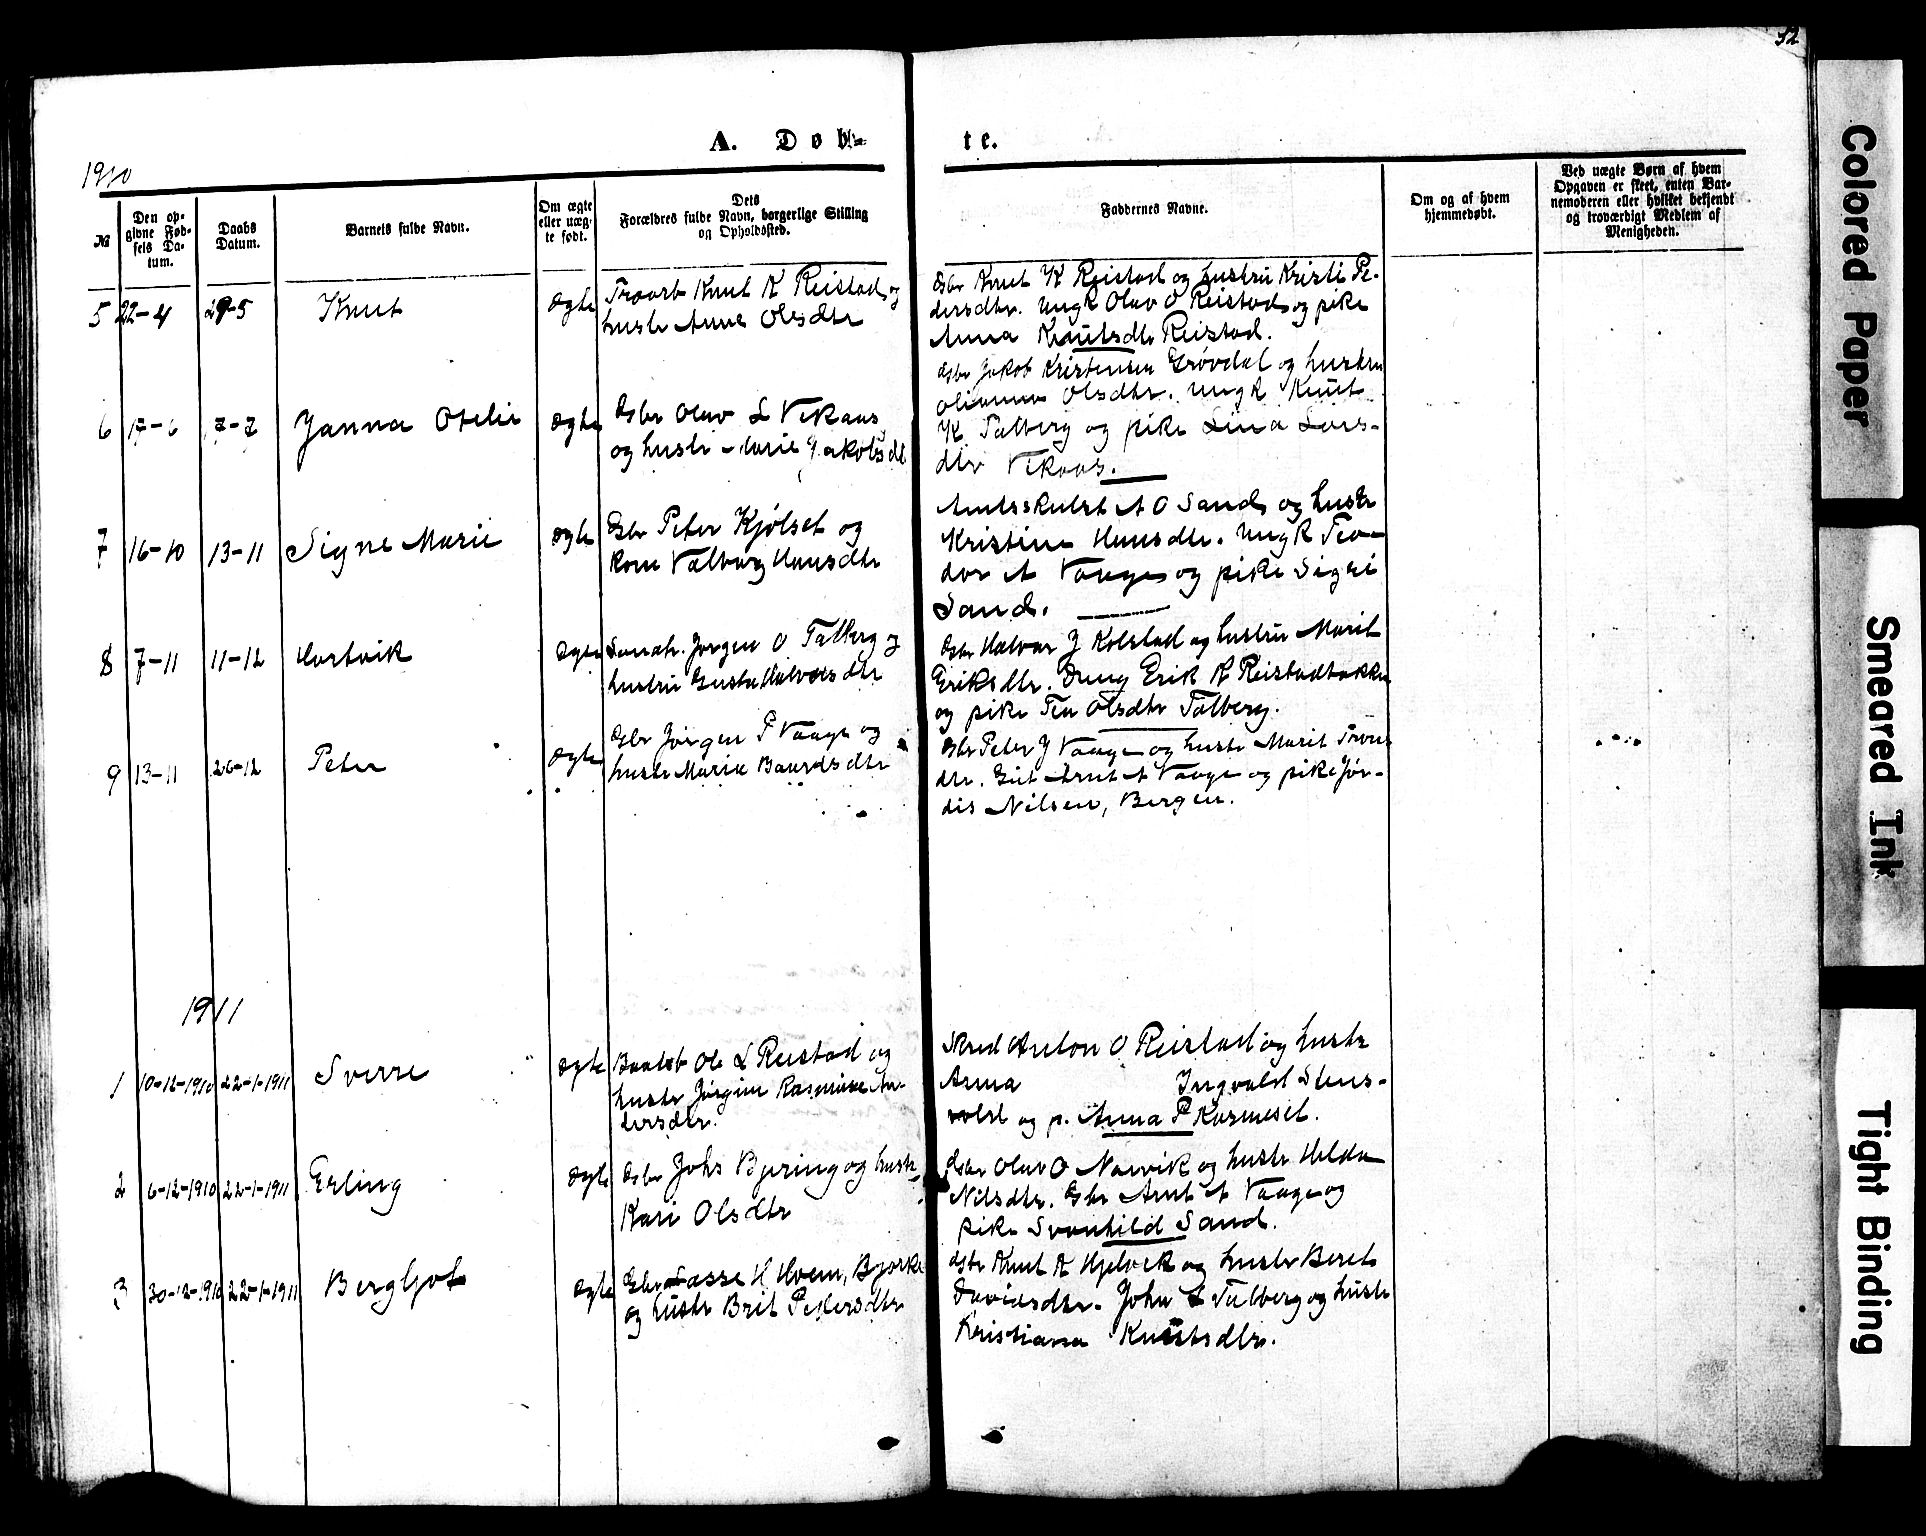 52
A. Døb=
te.
1910
№
Den op-
givne Fød-
sels Da-
tum.
Daabs
Datum.
Barnets fulde Navn.
Om ægte
eller uæg-
te født.
Dets
Forældres fulde Navn, borgerlige Stilling
og Opholdssted.
Faddernes Navne.
Om og af hvem
hjemmedøbt.
Ved uægte Børn af hvem
Opgaven er skeet, enten Bar-
nemoderen eller hvilket bekjendt
og troværdigt Medlem af
Menigheden.
5 22-4 29-5 Knut ægte
Knut K Reistad og
hustr Anne Olsdtr
Gbr Knut K Reistad og hustru Kristi Pe-
dersdtr. Ungk Olav O Reistad og pike
Anna Knutsdtr Reistad.
6 17-6 7-7 Janna Otelie ægte
Gbr Olav L Vikaas
og hustr Marie Jakobsdt
Gbr Jakob Kristensen Grøvdal og hustru
Olianna Olsdtr. Ungk Knut
K Talberg og pike Lina Lars-
dtr Vikaas.
7 16-10 13-11 Signe Marie ægte
Gbr Peter Kjølset og
kone Valborg Hansdtr
A O Sand og hustr
Kristine Hansdtr. Ungk Teo-
dor A Vaage og pike Signi
Sand.
8 7-11 11-12 ægte
Jørgen O Talberg og
hustru Gusta Halvorsdtr
Gbr Halvor J Kolstad og hustru Marit
Eriksdtr. Erik K Reistadbakke
og pike Tea Olsdtr Talberg.
9 13-11 26-12 Peter ægte
Gbr Jørgen P Vaage og
hustr Marie Baardsdtr
Gbr Peter J Vaage og hustr Marit
dtr. Gut Arnt A Vaage og pike Jør-
dis Nilsen, Bergen.
1911
1 10-12-1910 22-1-1911 Sverre ægte
Ole L Reistad og
hustr Jørgine Rasmine An-
dersdtr.
Anton O Reistad og hustr
Anna Ingvald Stens-
vold og p. Anna P Karmeset.
2 6-12-1910 22-1-1911 Erling ægte
Gbr Johs Bjering og hustr
Kari Olsdtr
Gbr Olav O Narvik og hustr Helda
Nilsdtr. Gbr Arnt A Vaage og
pike Svanhild Sand.
3 30-12-1910 22-1-1911 Bergljot ægte
Gbr Lasse H Hoem, Bjørke
og hustr Brit Pedersdtr
Gbr Knut K Hjelvik og hustr Beret
Davidsdtr. John L Talberg og hustr
Kristiana Knutsdtr.
Colored Paper
Smeared Ink
Tight Binding